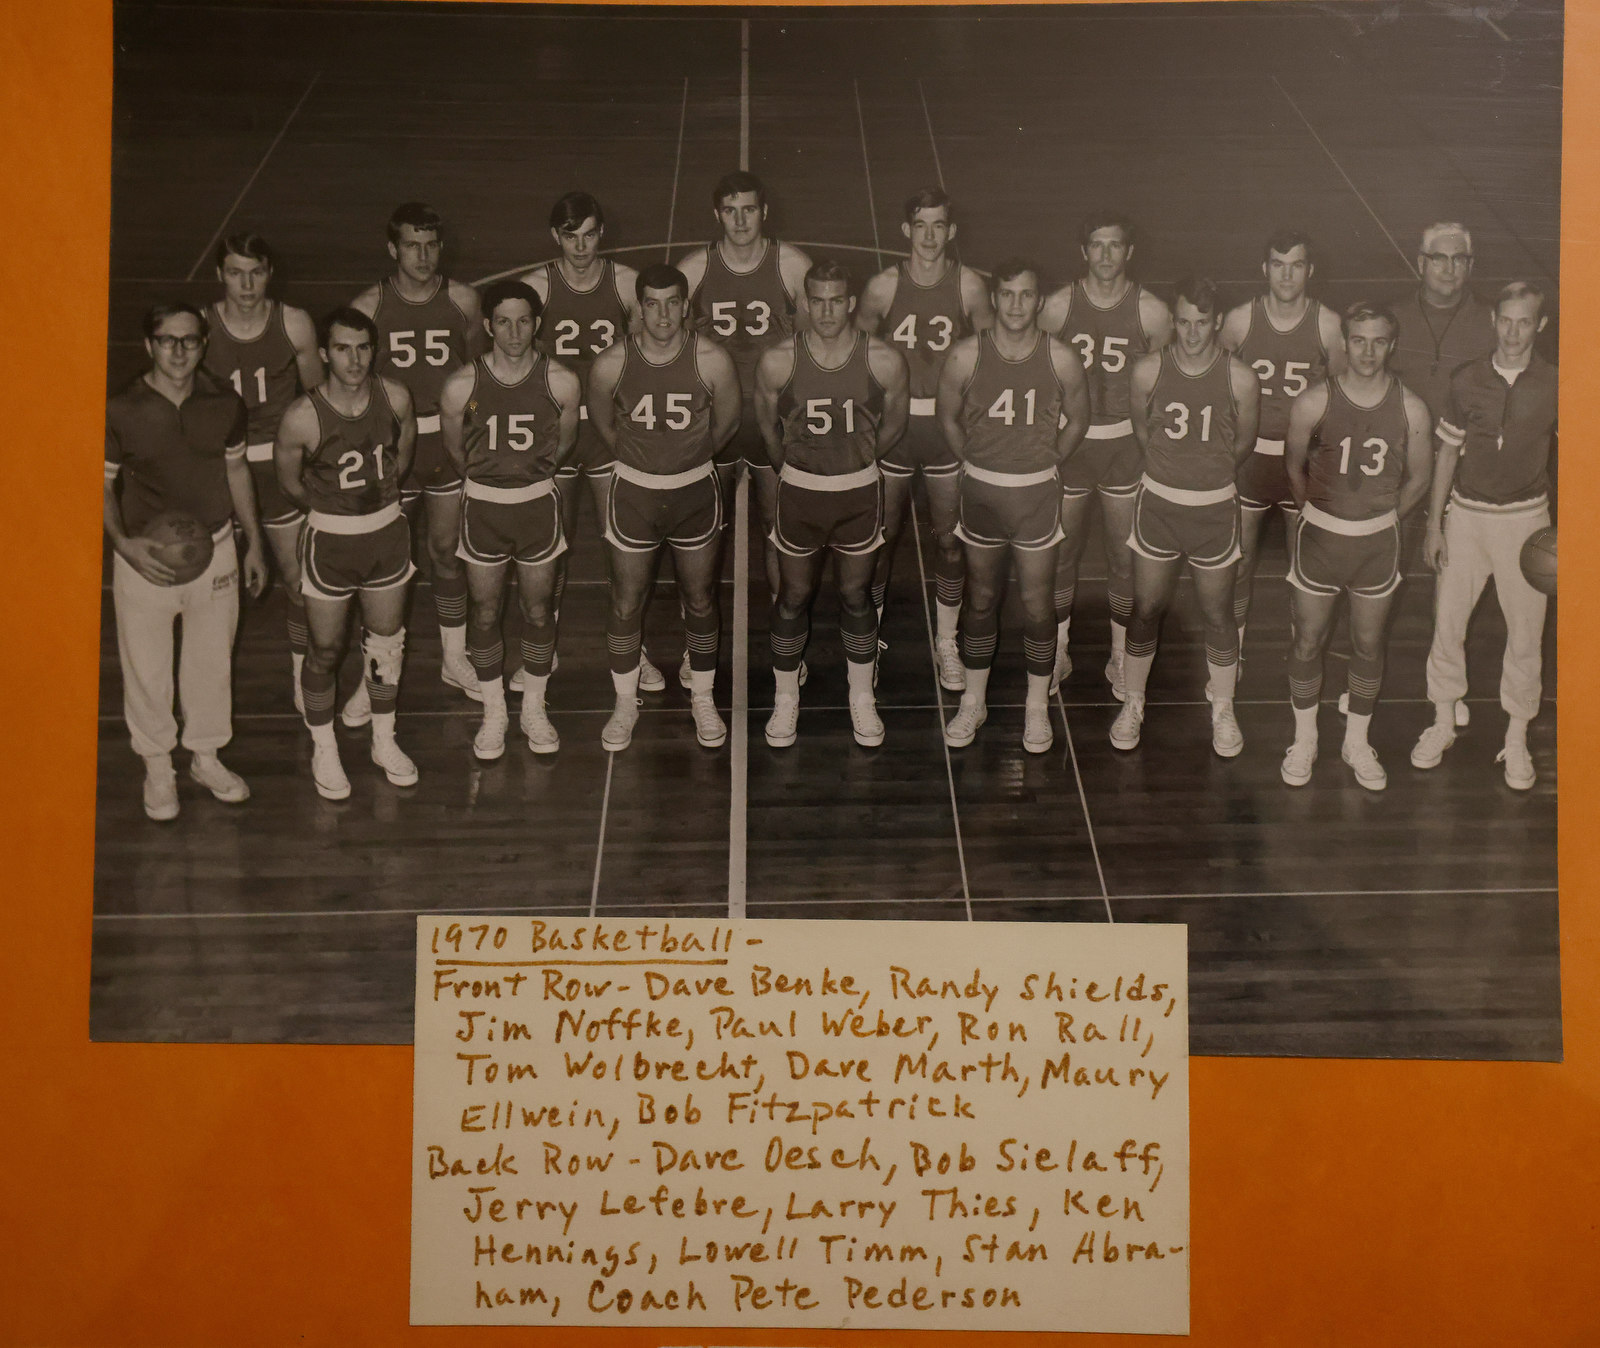 53
55
23
43
11
35
25
45
51
41
15
31
21
13
1970 Basketball -
Front Row - Dave Benke, Randy Shields,
Jim Noffke, Paul Weber, Ron Rall,
Tom Wolbrecht, Dave Marth, Maury
Ellwein, Bob Fitzpatrick
Back Row - Dave Oesch, Bob Sielaff,
Jerry Lefebre, Larry Thies, Ken
Hennings, Lowell Timm, Stan Abra-
ham, Coach Pete Pederson